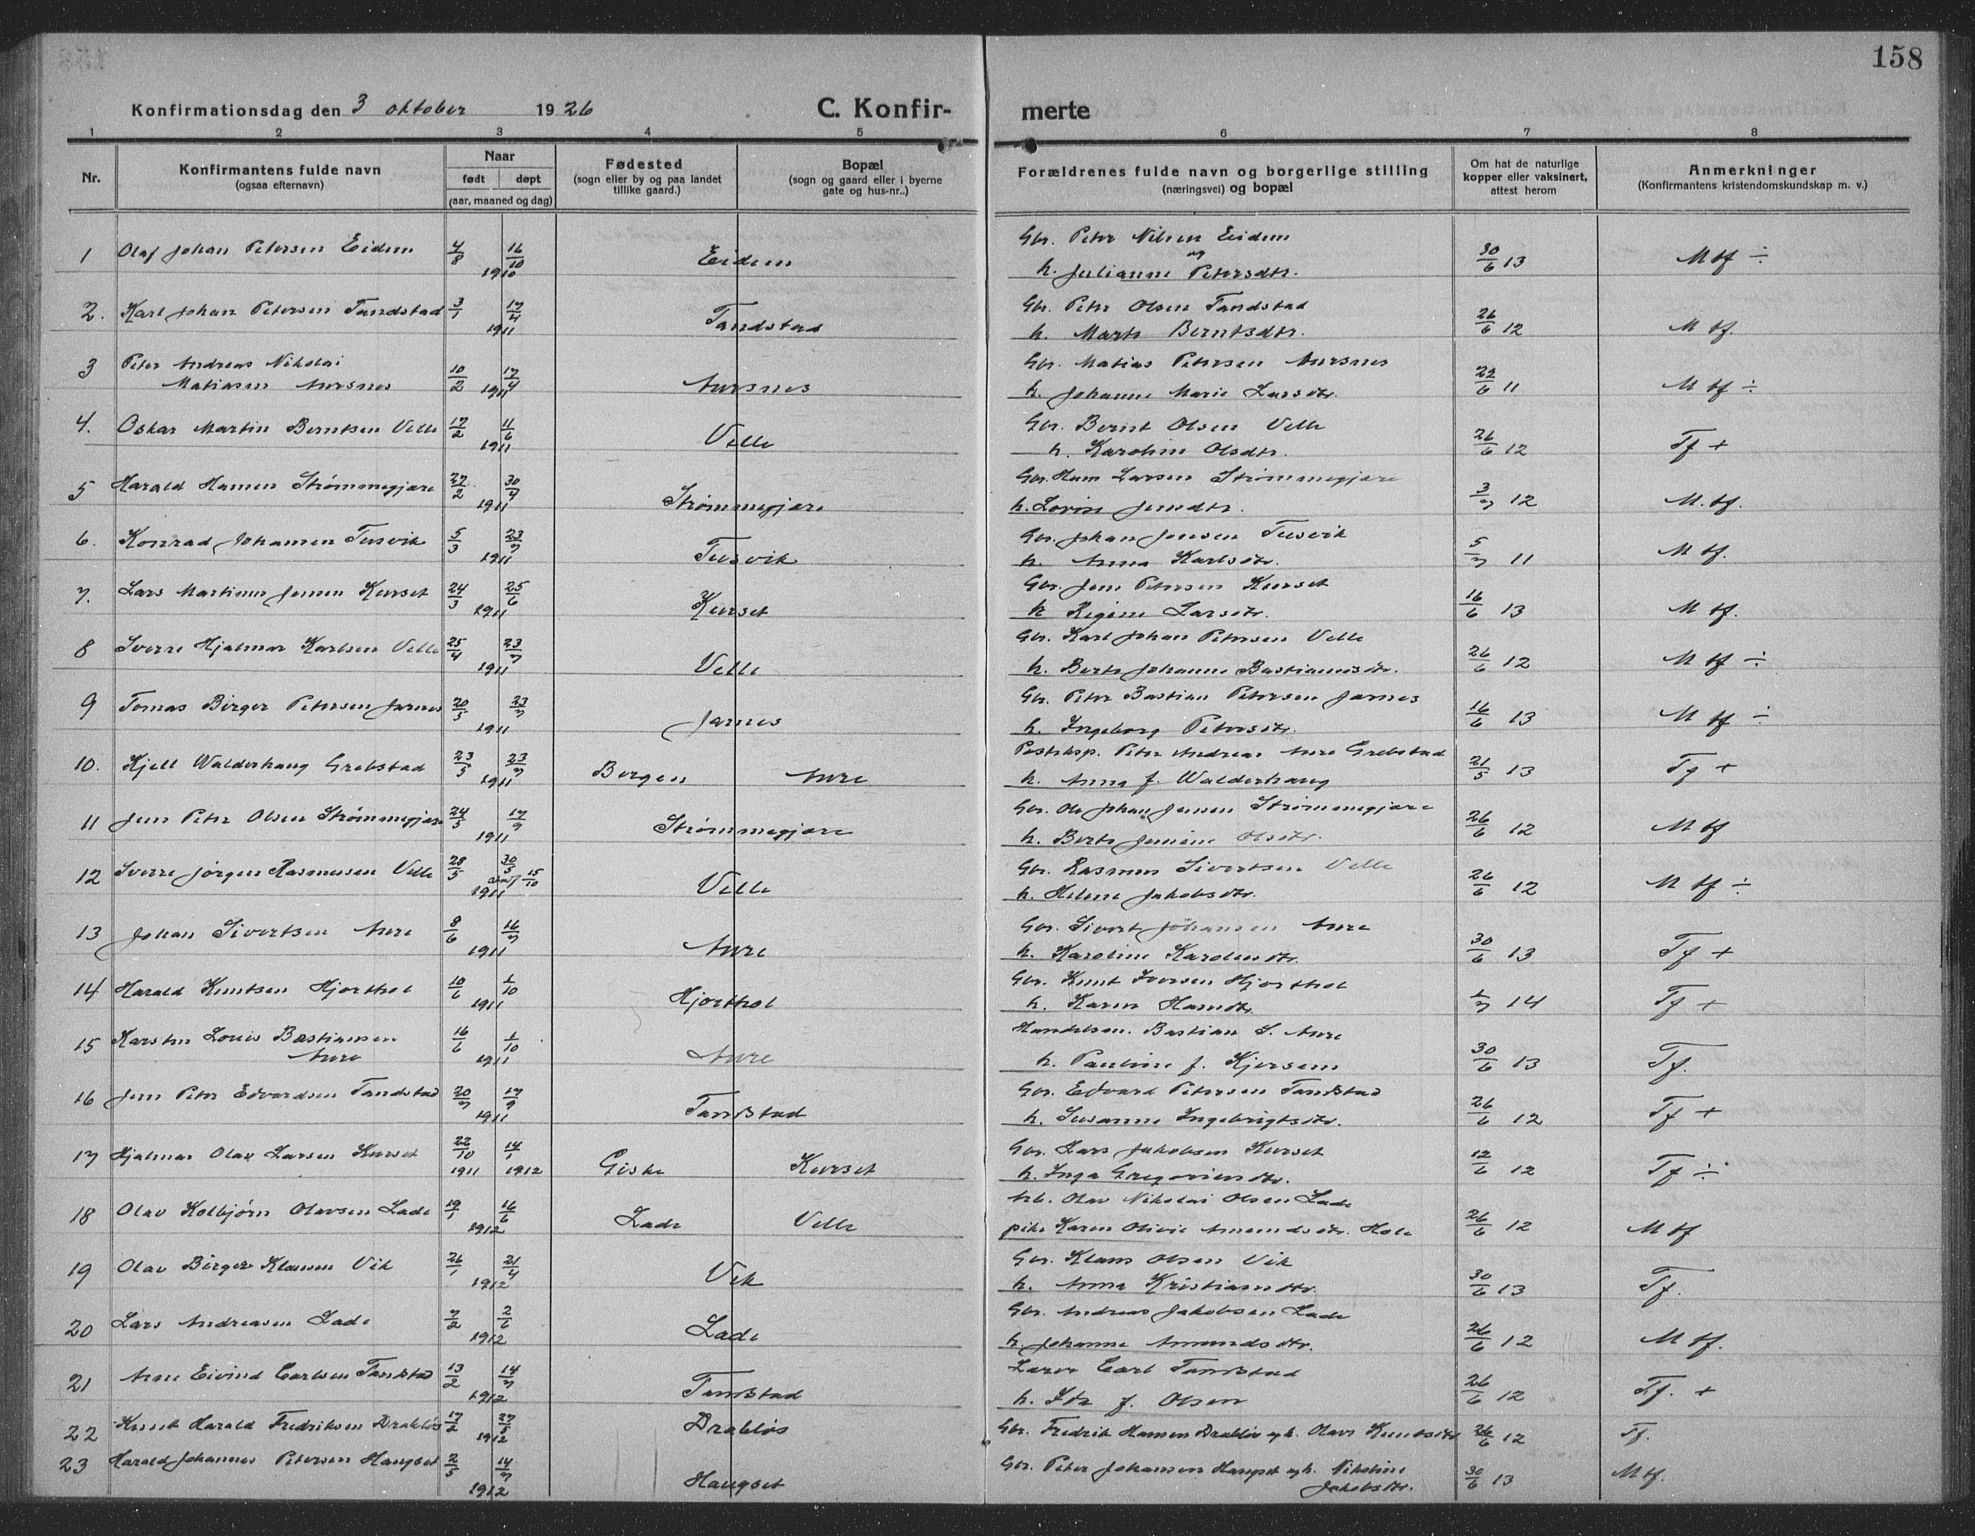 158
Konfirmationsdag den 3 oktober 1926 C. Konfir- merte
1 2 3 4 5 6 7 8
Nr. Konfirmantens fulde navn (ogsaa efternavn) Naar født døpt (aar, maaned og dag) Fødested (sogn eller by og paa landet tillike gaard.) Bopæl (sogn og gaard eller i byerne gate og hus-nr..) Forældrenes fulde navn og borgerlige stilling (næringsvei) og bopæl Om hat de naturlige kopper eller vaksinert, attest herom Anmerkninger (Konfirmantens kristendomskundskap m. v.)
1 Olaf Johan Petersen Eidem 4/8 16/10 1910 Eidem Gbr. Peter Nilsen Eidem og h. Julianne Petersdtr. 30/6 13 M tf ÷
2. Karl Johan Petersen Tandstad 3/1 17/4 1911 Tandstad Gbr. Peter Olsen Tandstad h. Marte Berntsdtr. 26/6 12 M tf.
3 Peter Andreas Nikolai Matiasen Aursnes 10/2 17/4 1911 Aursnes Gbr. Matias Petersen Aursnes h. Johanne Marie Larsdtr. 22/6 11 M tf ÷
4. Oskar Martin Berntsen Velle 17/2 11/6 1911 Velle Gbr. Bernt Olsen Velle h. Karoline Olsdtr. 26/6 12 Tf +
5 Harald Hansen Strømmegjære 27/2 30/4 1911 Strømmegjære Gbr. Hans Larsen Strømmegjære h. Lovise Jensdtr. 3/7 12 M. tf.
6. Konrad Johansen Tusvik 5/3 23/7 1911 Tusvik Gbr. Johan Jensen Tusvik h. Anna Karlsdtr. 5/7 11 M tf.
7. Lars Martinus Jensen Kurset 24/3 25/6 1911 Kurset Gbr. Jens Petersen Kurset h Regine Larsdtr. 16/6 13 M tf.
8 Sverre Hjalmar Karlsen Velle 25/4 23/7 1911 Velle Gbr. Karl Johan Petersen Velle h. Berte Johanne Bastiansdtr. 26/6 12 M tf ÷
9 Tomas Birger Petersen Jarnes 20/5 23/7 1911 Jarnes Gbr. Peter Bastian Petersen Jarnes h. Ingeborg Petersdtr. 16/6 13 M tf ÷
10. Kjell Walderhaug Grebstad 23/5 23/7 1911 Bergen Aure Posteksp. Peter Andreas Aure Grebstad h. Anna f. Walderhaug 21/5 13 Tg +
11 Jens Peter Olsen Strømmegjære 24/5 17/9 1911 Strømmegjære Gbr. Ole Johan Jensen Strømmegjære h. Berte Jensine Olsdtr. 26/6 12 M tf
12 Sverre Jørgen Rasmussen Velle 28/5 30/5 15/10 1911 Velle Gbr. Rasmus Sivertsen Velle h. Helene Jakobsdtr. 26/6 12 M tf ÷
13 Johan Sivertsen Aure 8/6 16/7 1911 Aure Gbr. Sivert Johansen Aure h. Karoline Karolusdtr. 30/6 13 Tf +
14 Harald Knutsen Hjorthol 10/6 1/10 1911 Hjorthol Gbr. Knut Iversen Hjorthol h. Karen Hansdtr. 1/7 14 Tg +
15 Karsten Louis Bastiansen Aure 16/6 1/10 1911 Aure Handelsm. Bastian S. Aure h. Pauline f. Kjersem 30/6 13 Tf.
16 Jens Peter Edvardsen Tandstad 20/7 17/9 1911 Tandstad Gbr. Edvard Petersen Tandstad h. Susanne Ingebrigtsdtr. 26/6 12 Tf +
17 Hjalmar Olav Larsen Kurset 22/10 1911 14/1 1912 Giske Kurset Gbr. Lars Jakobsen Kurset h. Inga Gregoriusdtr. 12/6 12 Tf ÷
18 Olav Kolbjørn Olavsen Lade 19/1 16/6 1912 Lade Velle Arb. Olav Nikolai Olsen Lade pike Karen Olivie Amundsdtr. Hole 26/6 12 M tf
19 Olav Birger Klausen Vik 26/1 21/4 1912 Vik Gbr. Klaus Olsen Vik h. Anna Kristiansdtr. 30/6 13 Tf.
20 Lars Andreasen Lade 7/2 2/6 1912 Lade Gbr. Andreas Jakobsen Lade h Johanne Amundsdtr. 26/6 12 M tf.
21 Arne Eivind Carlsen Tandstad 13/2 14/7 1912 Tandstad Lærer Carl Tandstad h. Ida f. Olsen 26/6 12 Tf. +
22 Knut Harald Fredriksen Drabløs 17/2 27/5 1912 Drabløs Gbr. Fredrik Hansen Drabløs og h. Olave Knutsdtr 26/6 12 Tf.
23 Harald Johannes Petersen Haugset 2/5 14/7 1912 Haugset Gbr. Peter Johansen Haugset og h. Nikoline Jakobsdtr. 30/6 13 M tf.